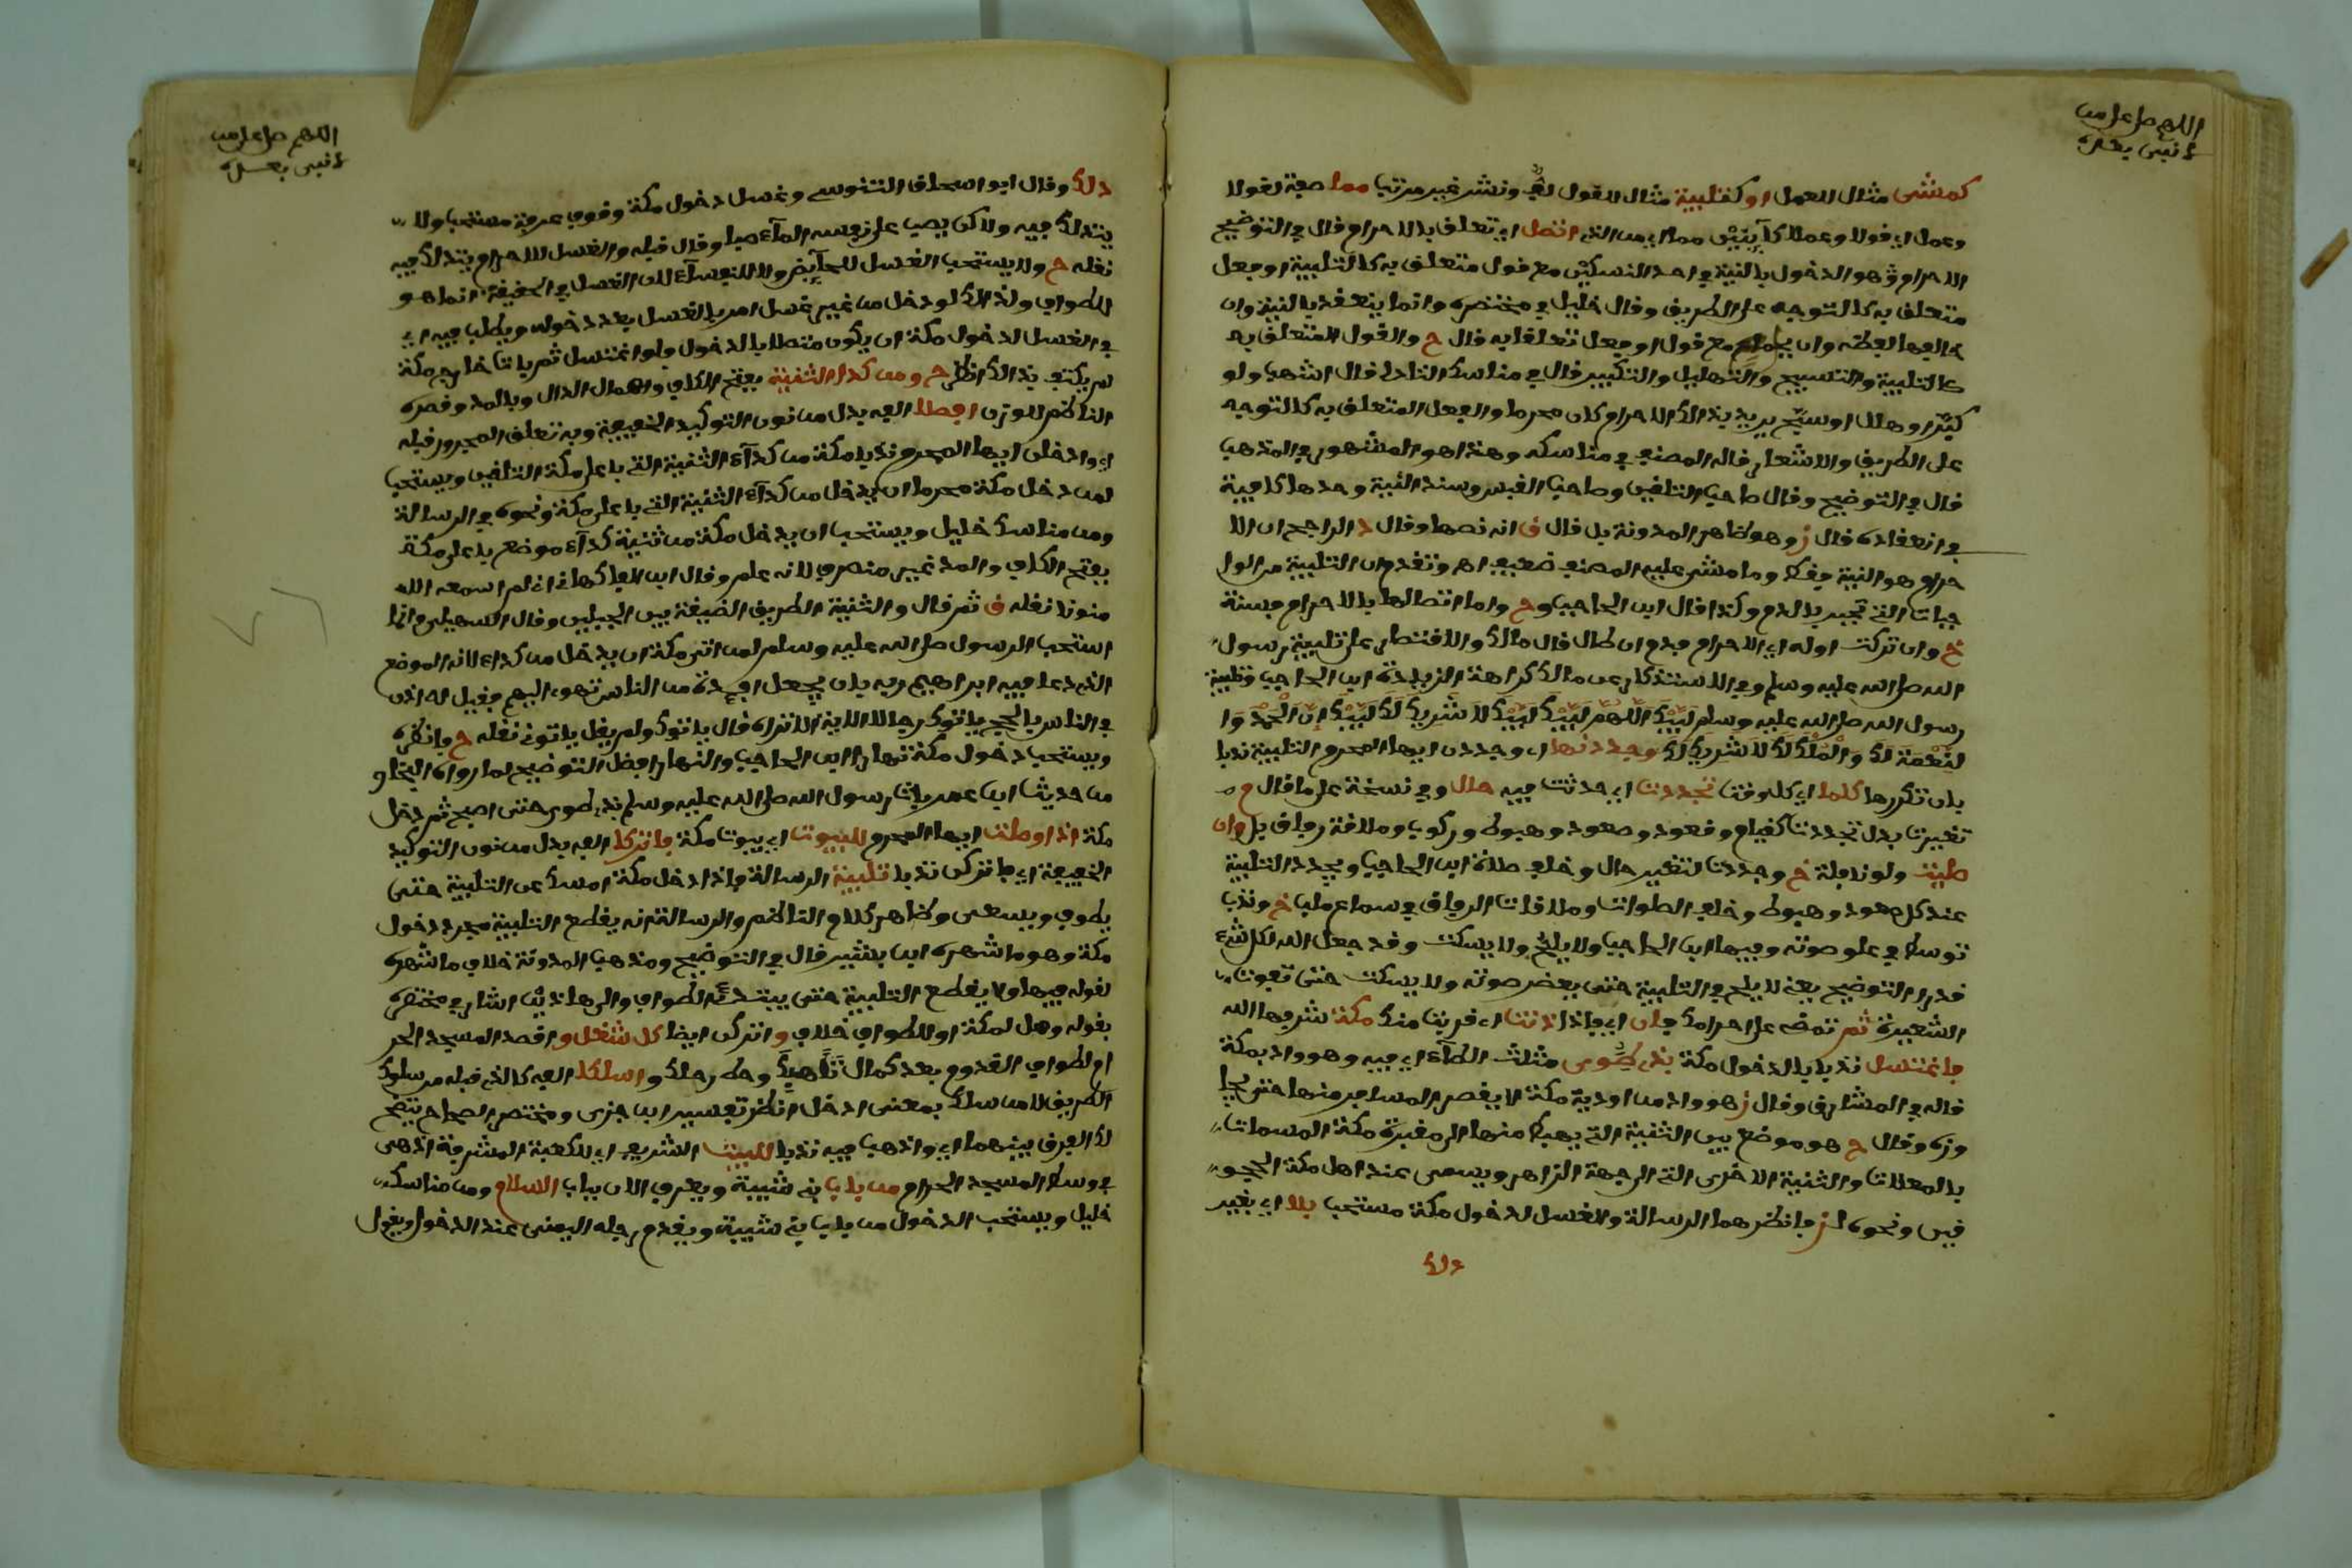 اللهم صل على من
لا نبي بعده
كمشي مثال للعمل او كتلبية مثال للقول لف ونشر غير مرتب مما صفة لقولا
وعملا اي قولا وعملا كاينين مما اي من الذي اتصل اي تعلق بالاحرام قال في التوضيح
الاحرام هو الدخول بالنية في احد النسكين مع قول متعلق به كالتلبية او فعل
متعلق به كالتوجه على الطريق وقال خليل في مختصره وانما ينعقد بالنية وان
خالفها لفظه وان بجماع مع قول او فعل تعلقا به قال ح والقول المتعلق به
كالتلبية والتسبيح والتهليل والتكبير قال في مناسك التادلي قال اشهب ولو
كبر او هلل او سبح يريد بذالك الاحرام كان محرما والفعل المتعلق به كالتوجه
على الطريق والاشعار قاله المصنف في مناسكه وهذا هو المشهور في المذهب
قال في التوضيح وقال صاحب التلقين وصاحب القبس وسند النية وحدها كافية
في انعقاده قال ز وهو ظاهر المدونة بل قال ق انه نصها وقال د الراجح ان الا
حرام هو النية فقط وما مشى عليه المصنف ضعيف اهـ وتقدم ان التلبية من الوا
جبات التي تجبر بالدم وكذا قال ابن الحاجب و ح واما اتصالها بالاحرام فسنة
خ وان تركت اوله اي الاحرام فدم ان طال قال مالك والاقتصار على تلبية رسول
الله صلى الله عليه وسلم وفي الاستذكار عن مالك كراهة الزيادة ابن الحاجب وتلبية
رسول الله صلى الله عليه وسلم لبيك اللهم لبيك لبيك لا شريك لك لبيك ان الحمد وا
لنعمة لك والملك لا شريك لك وجددنها اي وجددن ايها المحرم التلبية ندبا
بان تكررها كلما اي كل وقت تجددت اي حدثت فيه حال وفي نسخة على ما قال م
تغيرت بدل تجددت كقيام وقعود وصعود وهبوط وركوب وملاقة رفاق بل وان
صليت ولو نافلة خ وجددت لتغير حال وخلف صلاة ابن الحاجب ويجدد التلبية
عند كل صعود وهبوط وخلف الصلوات وملاقات الرفاق وسماع ملب خ وندب
توسط في علو صوته وفيها ابن الحاجب ولا يلح ولا يسكت وقد جعل الله لكل شيء
قدرا التوضيح يعني لا يلح في التلبية حتى يعقر صوته ولا يسكت حتى تفوت
الشعيرة ثم تمضي على احرامك فان اي فاذا دنت اي قربت منك مكة شرفها الله
فاغتسل ندبا بالدخول مكة بذي طوى مثلث الطاء اي فيه وهو واد بمكة
قاله في المشارق وقال ز هو واد من اودية مكة لا يقصر المسافر منها حتى يجا
وزه وقال ح هو موضع بين الثنية التي يهبط منها الى مقبرة مكة المسمات
بالمعلات والثنية الاخرى التي الى جهة الزاهر ويسمى عند اهل مكة الحجو
فين ونحوه لـ ز فانظرهما الرسالة والغسل لدخول مكة مستحب بلا اي بغير
دلك
اللهم صل على من
لا نبي بعده
دلك وقال ابو اسحاق التنوسي وغسل دخول مكة وقوف عرفة مستحب ولا
يتدلك فيه ولاكن يصب على نفسه الماء صبا وقال قبله والغسل للاحرام يتدلك فيه
نقله ح ولا يستحب الغسل للحايض ولا للنفساء لان الغسل في الحقيقة انما هو
للطواف ولذالك لو دخل من غير غسل امر بالغسل بعد دخوله ويطلب فيه اي
في الغسل لدخول مكة ان يكون متصلا بالدخول ولو اغتسل ثم بات خارج مكة
لم يكتف بذالك انظر ح ومن كدا الثنية بفتح الكاف واهمال الدال وبالمد وقصره
الناظم للوزن ادخلا الفه بدل من نون التوكيد الخفيفة وبه تعلق المجرور قبله
اي وادخلن ايها المحرم ندبا مكة من كداء الثنية التي باعلى مكة التلقين ويستحب
لمن دخل مكة محرما ان يدخل من كداء الثنية التي باعلى مكة ونحوه في الرسالة
ومن مناسك خليل ويستحب ان يدخل مكة من ثنية كداء موضع باعلى مكة
بفتح الكاف والمد غير منصرف لانه علم وقال ابن الفاكهاني اني لم اسمعه الا
منونا نقله ق ثم قال والثنية الطريق الضيقة بين الجبلين وقال السهيلي وانما
استحب الرسول صلى الله عليه وسلم لمن اتى مكة ان يدخل من كداء لانه الموضع
الذي دعا فيه ابراهيم ربه بان يجعل افئدة من الناس تهوي اليهم فقيل له اذن
في الناس بالحج ياتوك رجالا الاية الا تراه قال ياتوك ولم يقل ياتوني نقله ح وانظره
ويستحب دخول مكة نهارا ابن الحاجب والنهار افضل التوضيح لما رواه البخاري
من حديث ابن عمر بات رسول الله صلى الله عليه وسلم بذي طوى حتى اصبح ثم دخل
مكة اذا وصلت ايها المحرم للبيوت اي بيوت مكة فاتركا الفه بدل من نون التوكيد
الخفيفة اي فاتركن ندبا تلبية الرسالة فاذا دخل مكة امسك عن التلبية حتى
يطوف ويسعى وظاهر كلام الناظم والرسالة انه يقطع التلبية بمجرد دخول
مكة وهو ما شهره ابن بشير قال في التوضيح ومذهب المدونة خلاف ما شهره
لقوله فيها ولا يقطع التلبية حتى يبتدئ الطواف والى هاذين اشار في مختصره
بقوله وهل لمكة او للطواف خلاف واتركن ايضا كل شغل واقصد المسجد الحر
ام لطواف القدوم بعد كمال تاهبك وحط رحلك واسلكا الفه كالذي قبله من سلوك
الطريق لا من سلك بمعنى ادخل انظر تفسير ابن جزى ومختصر الصحاح يتضح
لك الفرق بينهما اي واذهب فيه ندبا للبيت الشريف اي للكعبة المشرفة اذ هي
في وسط المسجد الحرام من باب بني شيبة ويعرف الان بباب السلام ومن مناسك
خليل ويستحب الدخول من باب بني شيبة ويقدم رجله اليمنى عند الدخول ويقول